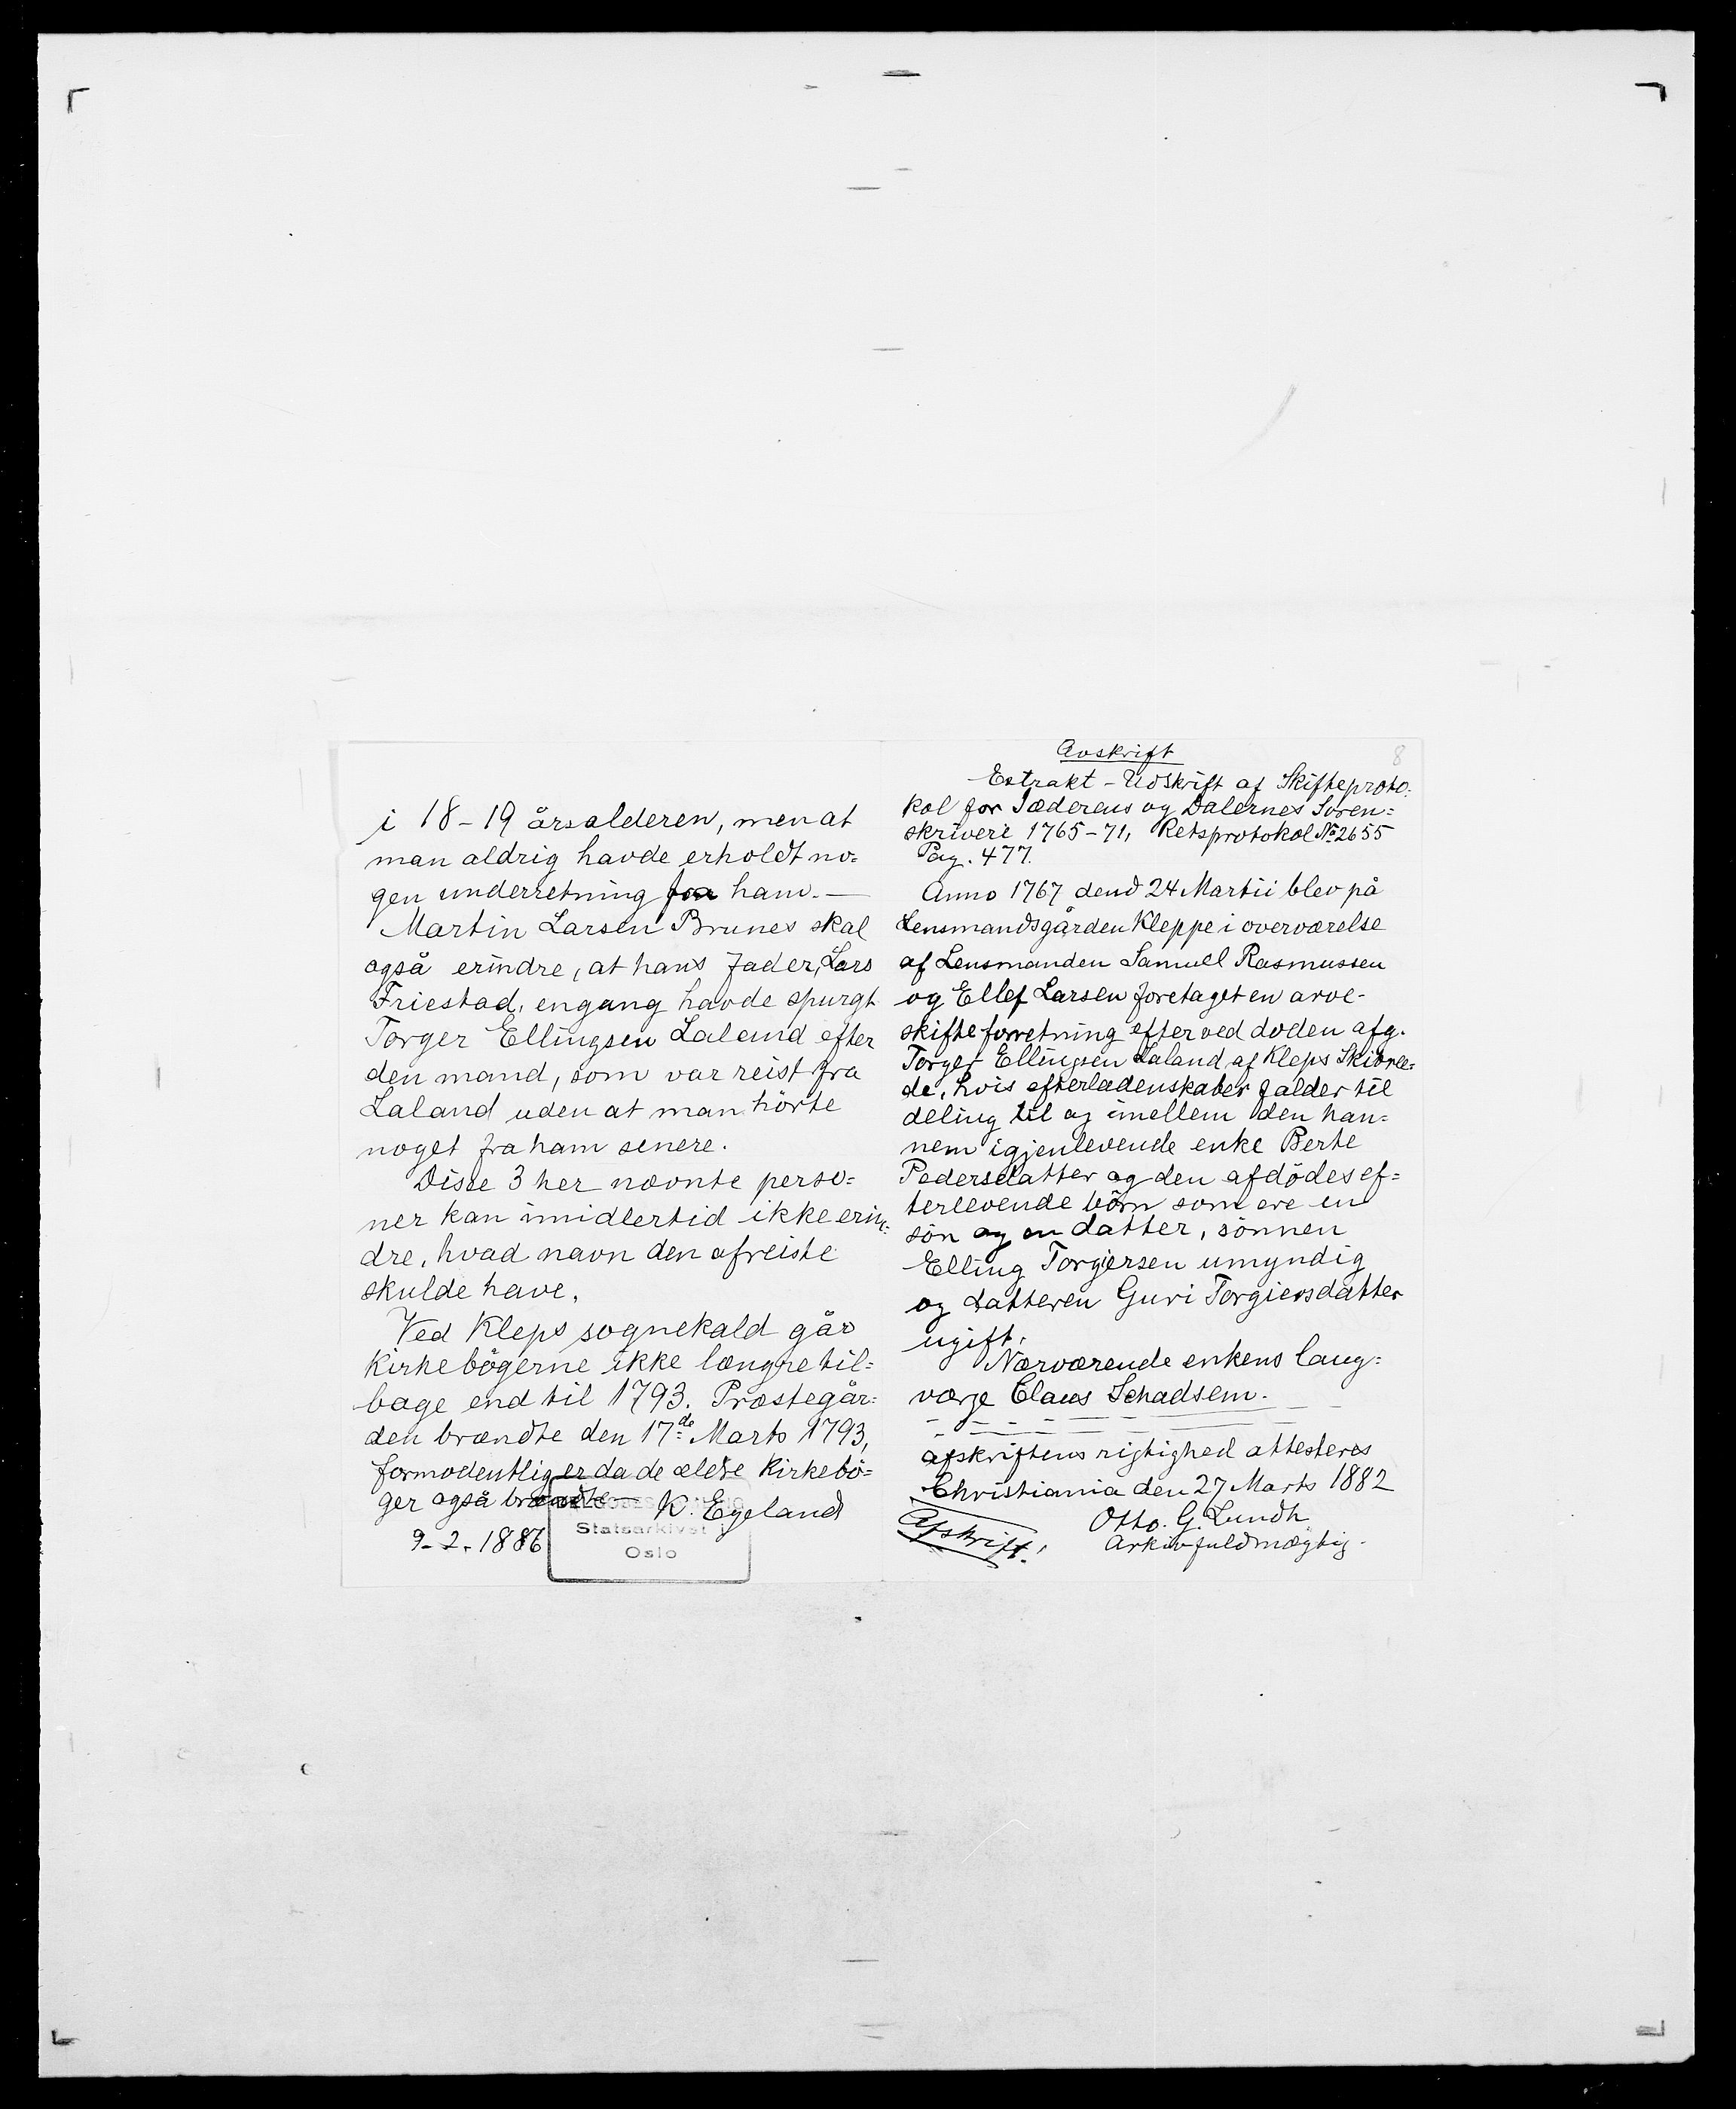 i 18-19 årsalderen, men at
man aldrig havde erholdt no=
gen underretning fra ham.—
Martin Larsen Brunes skal
også erindre, at hans Fader, Lars
Friestad, engang havde spurgt
Torger Ellingsen Laland efter
den mand, som var reist fra
Laland uden at man hörte
noget fra ham senere.
Disse 3 her nævnte perso=
ner kan imidlertid ikke erin=
dre, hvad navn den afreiste
skulde have.
Ved Kleps sognekald går
Kirkebögerne ikke længre til=
bage end til 1793. Præstegår=
den brændte den 17de Marts 1793,
formodentlig er da de ældre Kirkebö=
ger også brændte — K. Egeland
9-2-1886
Statsarkivet i
Oslo
8
Avskrift
Extrakt-Udskrift af Skifteproto=
kol for Jæderens og Dalernes Soren=
skriveri 1765-71, Retsprotokol No 2655
Pag. 477.
Anno 1767 dend 24 Martii blev på
Lensmandsgården Kleppe i overværelse
af Lensmanden Samuel Rasmussen
og Ellef Larsen foretaget en arve-
skifteforretning efter ved døden afg.
Torger Ellingsen Laland af Kleps Skibre=
de, hvis efterladenskaber falder til
deling til og imellem den han=
nem igjenlevende enke Berte
Pedersdatter og den afdödes ef=
terlevende börn som ere en
sön og en datter, sönnen
Elling Torgjersen umyndig
og datteren Guri Torgiersdatter
ugift.
Nærværende enkens laug=
værge Claus Schadsem.
afskriftens rigtighed attesteres
Christiania den 27 Marts 1882
Otto. G. Lundh
Afskrift! Arkivfuldmægtig.